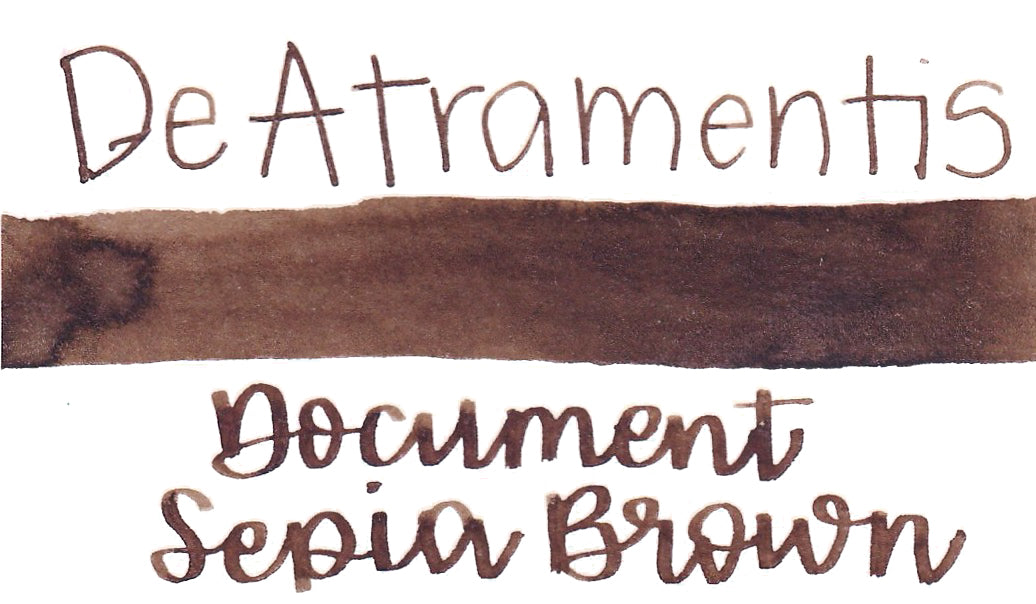 De Atramentis
Document
Sepia Brown